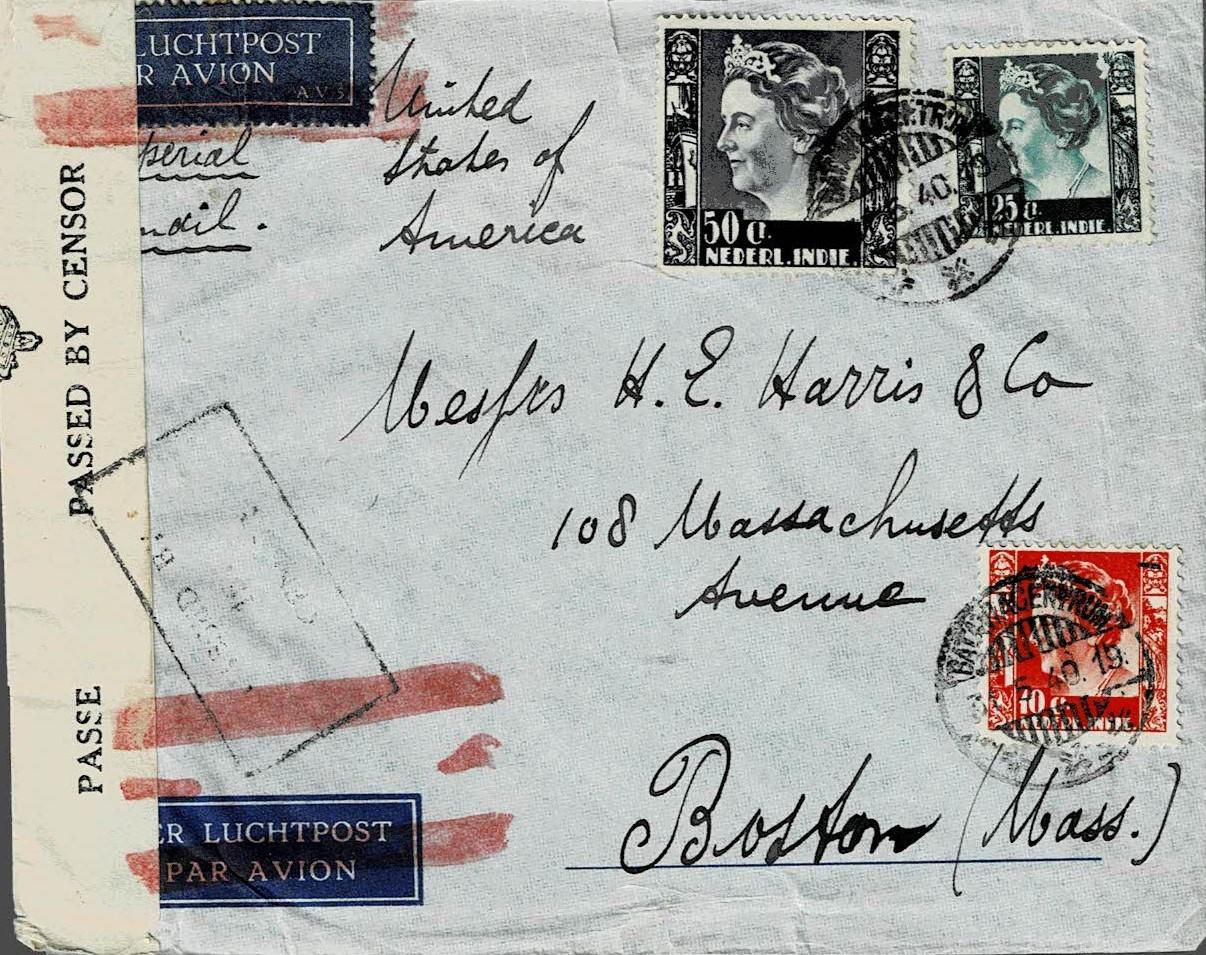 LUCHTPOST
R AVION
AVS
United
States of
America
perial
mail.
50 ct.
NEDERL. INDIE.
25 ct.
NEDERL. INDIE.
40. 19
PASSED BY CENSOR
PASSE
Messrs H. E. Harris & Co
108 Massachusetts
Avenue
BATAVIACENTRUM
5. 40. 19.
10 ct.
Boston (Mass.)
ER LUCHTPOST
PAR AVION